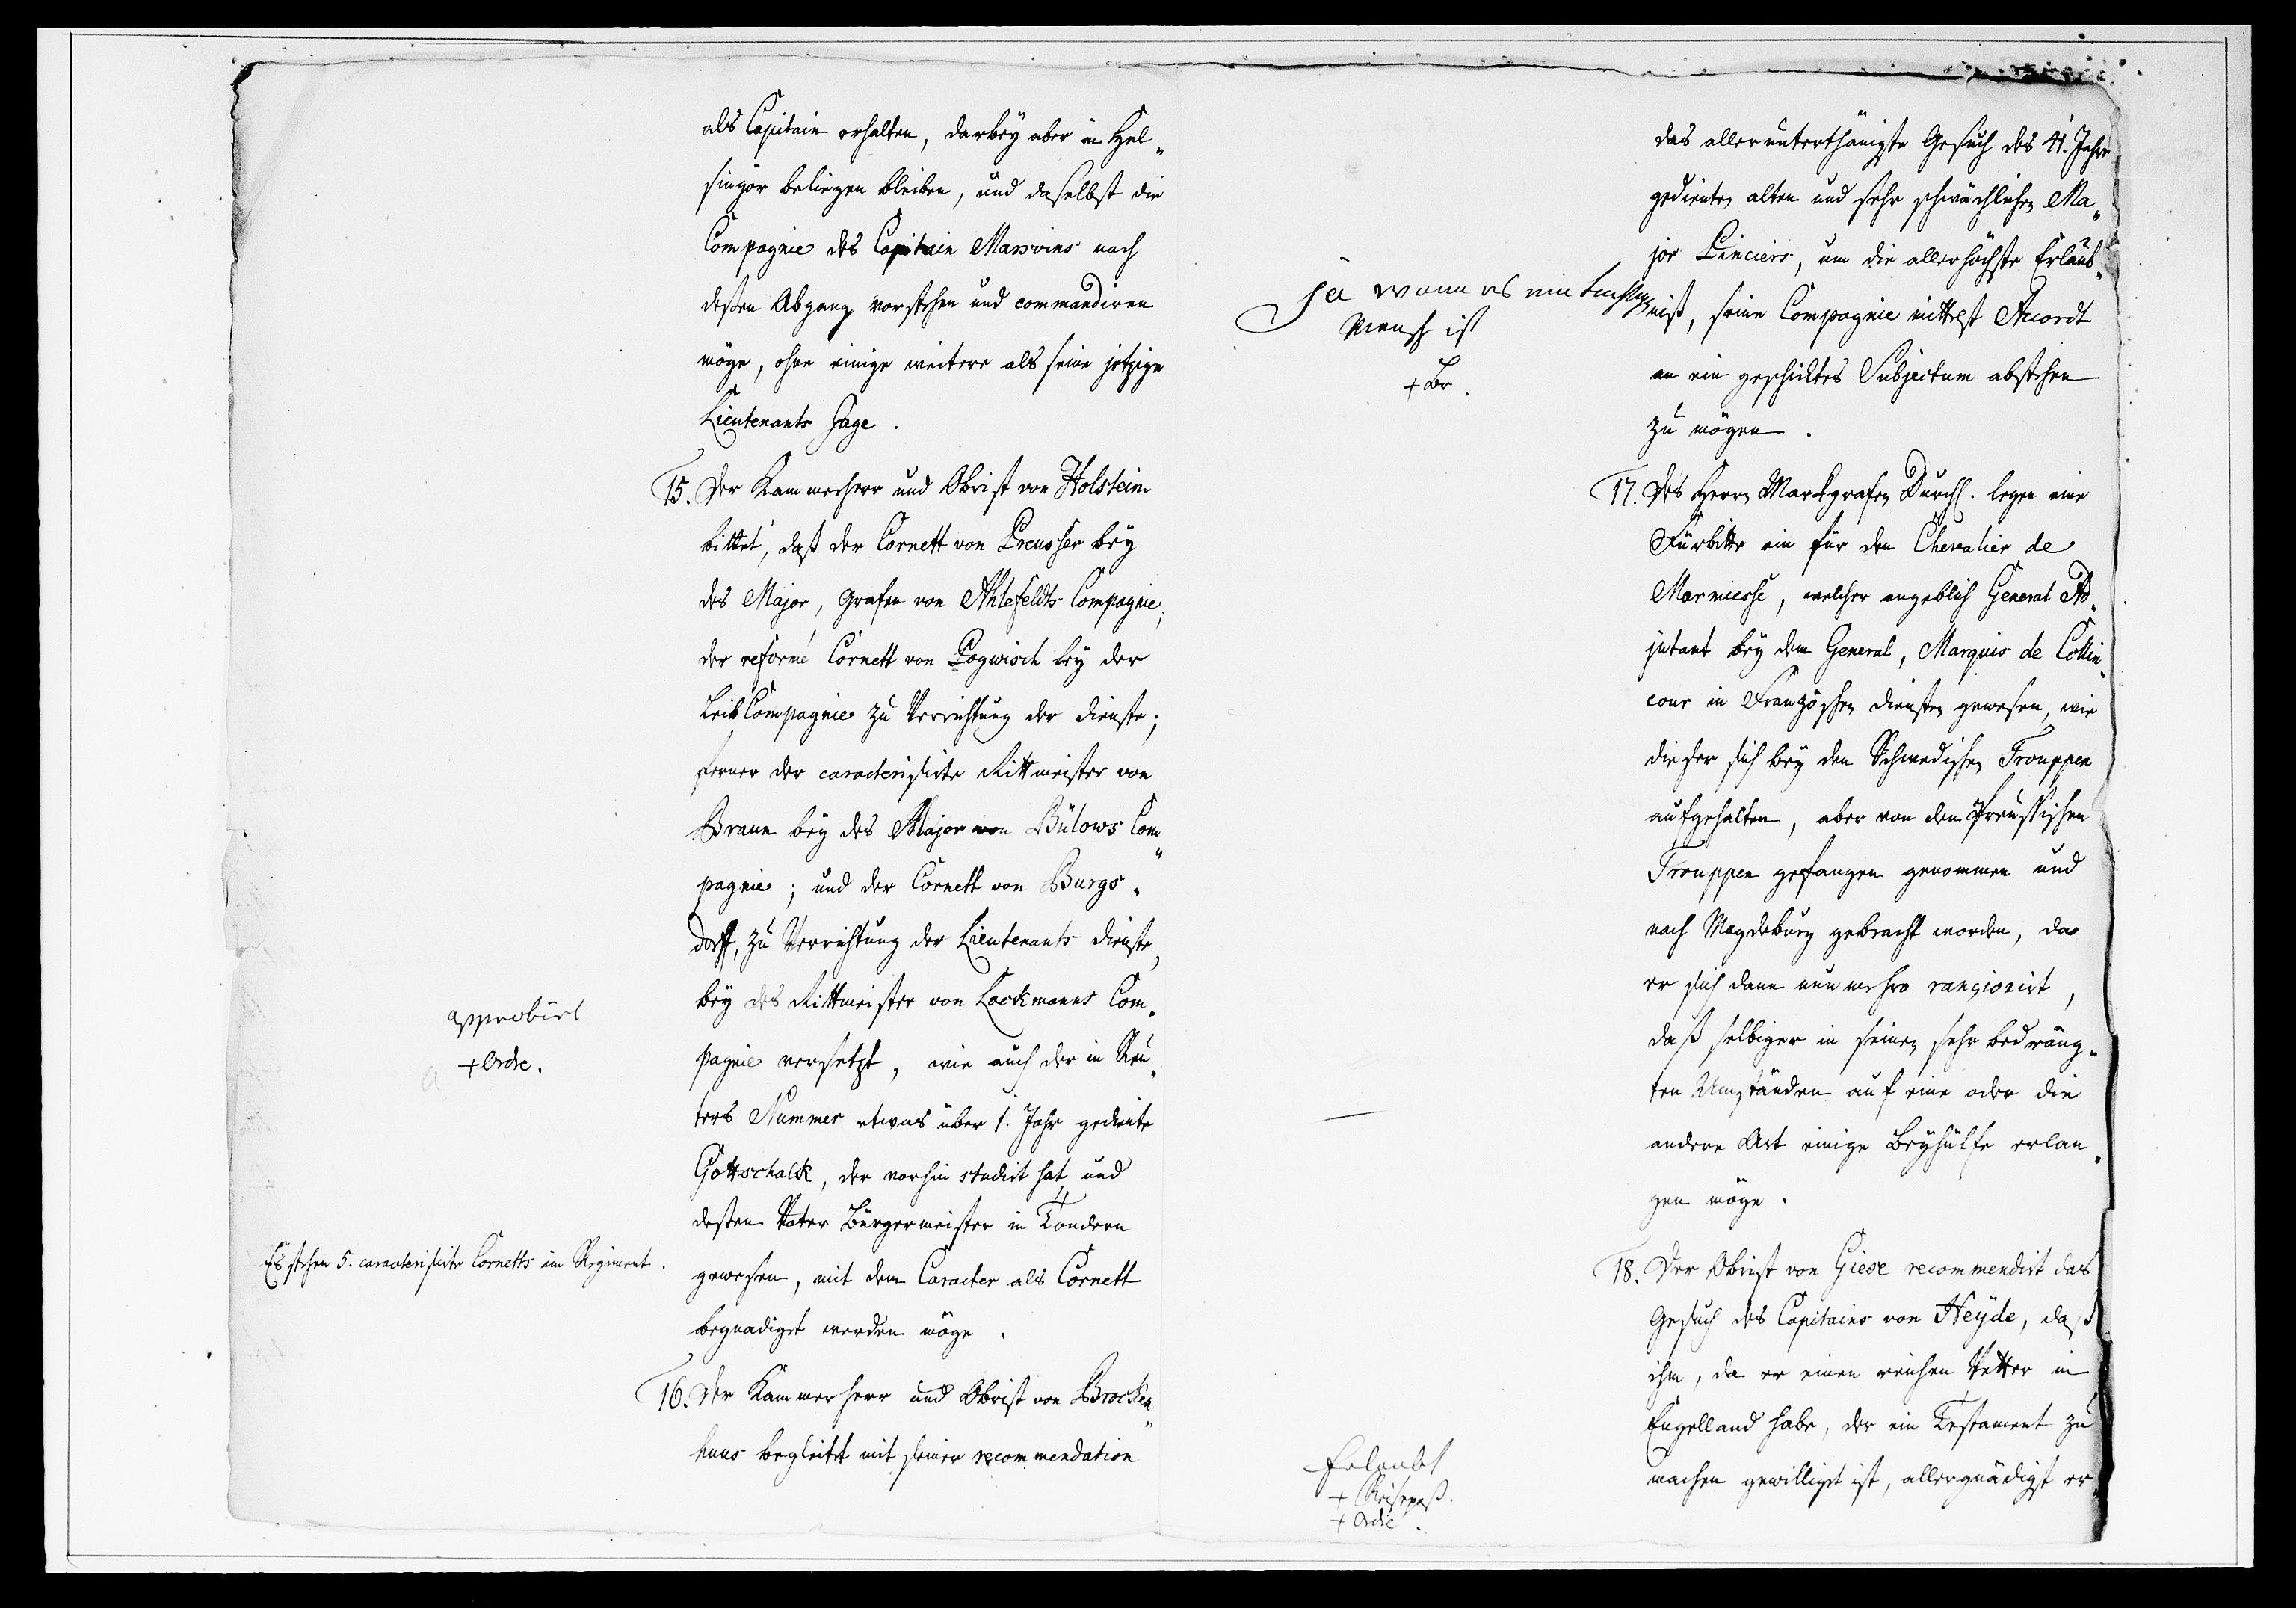 als Capitain erhalten, darbey aber in Hel„
singör beliegen bleiben, und daselbst die
Compagnie des Capitain Massvins nach
deßen Abgang vorstehen und commandiren
möge, ohne einige weitere als seine jetzige
Lieutenants Gage.
15. Der Kammerherr und Obrist von Holstein
bittet, daß der Cornett von Preusser bey
des Major, Grafen von Ahlefeldts Compagnie;
der reformé Cornett von Pogwisch bey der
Leib Compagnie zu Verrichtung der dienste;
ferner der caracterisirte Rittmeister von
Braun bey des Major von Bülows Com„
pagnie; und der Cornett von Burgs„
dorff, zu Verrichtung der Lieutenants dienste,
bey des Rittmeister von Lockmanns Com„
pagnie versetzt, wie auch der in Reu„
ters Nummer etwas über 1. Jahr gediente
Gottschalck, der vorhin studirt hat und
deßen Vater Bürgermeister in Tondern
gewesen, mit dem Caracter als Cornett
begnadiget werden möge.
approbirt
+ Ordre.
Es stehen 5. caracterisirte Cornetts im Regiment.
16. Der Kammerherr und Obrist von Brocken„
huus begleitet mit seiner recommendation
das allerunterthänigste Gesuch des 41. Jahre
gedienten alten und sehr schwächlichen Ma„
jor Linciers, um die allerhöchste Erlaub„
niß, seine Compagnie mittelst Accordt
an ein geschicktes Subjectum abstehen
zu mögen.
Ja wann es ein
Mensch ist
+ Br.
17. Des Herrn Markgrafen Durchl. legen eine
Fürbitte ein für den Chevalier de
Marmiesse, welcher angeblich General Ad„
jutant bey dem General, Marquis de Collin„
cour in Französchen diensten gewesen, wie
dieser sich bey den Schwedischen Trouppen
aufgehalten, aber von den Preussischen
Trouppen gefangen genommen und
nach Magdeburg gebracht worden, da
er sich dann nunmehro rançionirt,
daß selbiger in seinen sehr bedräng„
ten Umständen auf eine oder die
andere Art einige Beyhülfe erlan„
gen möge.
18. Der Obrist von Giese recommendirt das
Gesuch des Capitains von Heyde, daß
ihm, da er einen reichen Vetter in
Engelland habe, der ein Testament zu
machen gewilliget ist, allergnädigst er„
Erlaubt
+ Reisepaß.
+ Ordre.